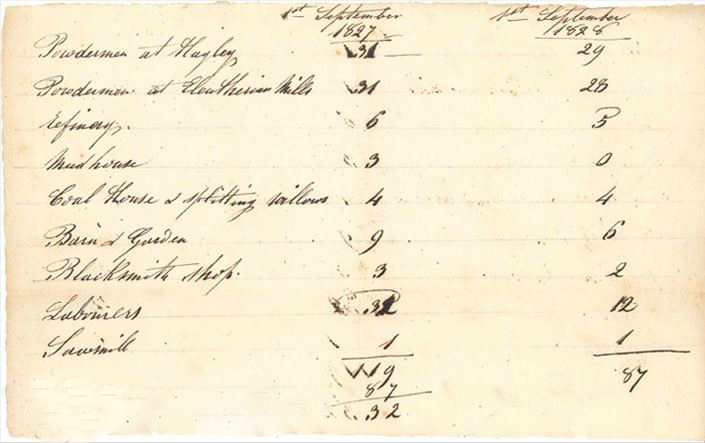 1st September 1st September
1827 1828
Powdermen at Hagley 31 29
Powdermen at Eleutherian Mills 31 28
Refinery 6 5
Mudhouse 3 0
Coal House & splitting willows 4 4
Barn & Garden 9 6
Blacksmith shop. 3 2
Labourers 32 12
Sawmill 1 1
119 87
87
32